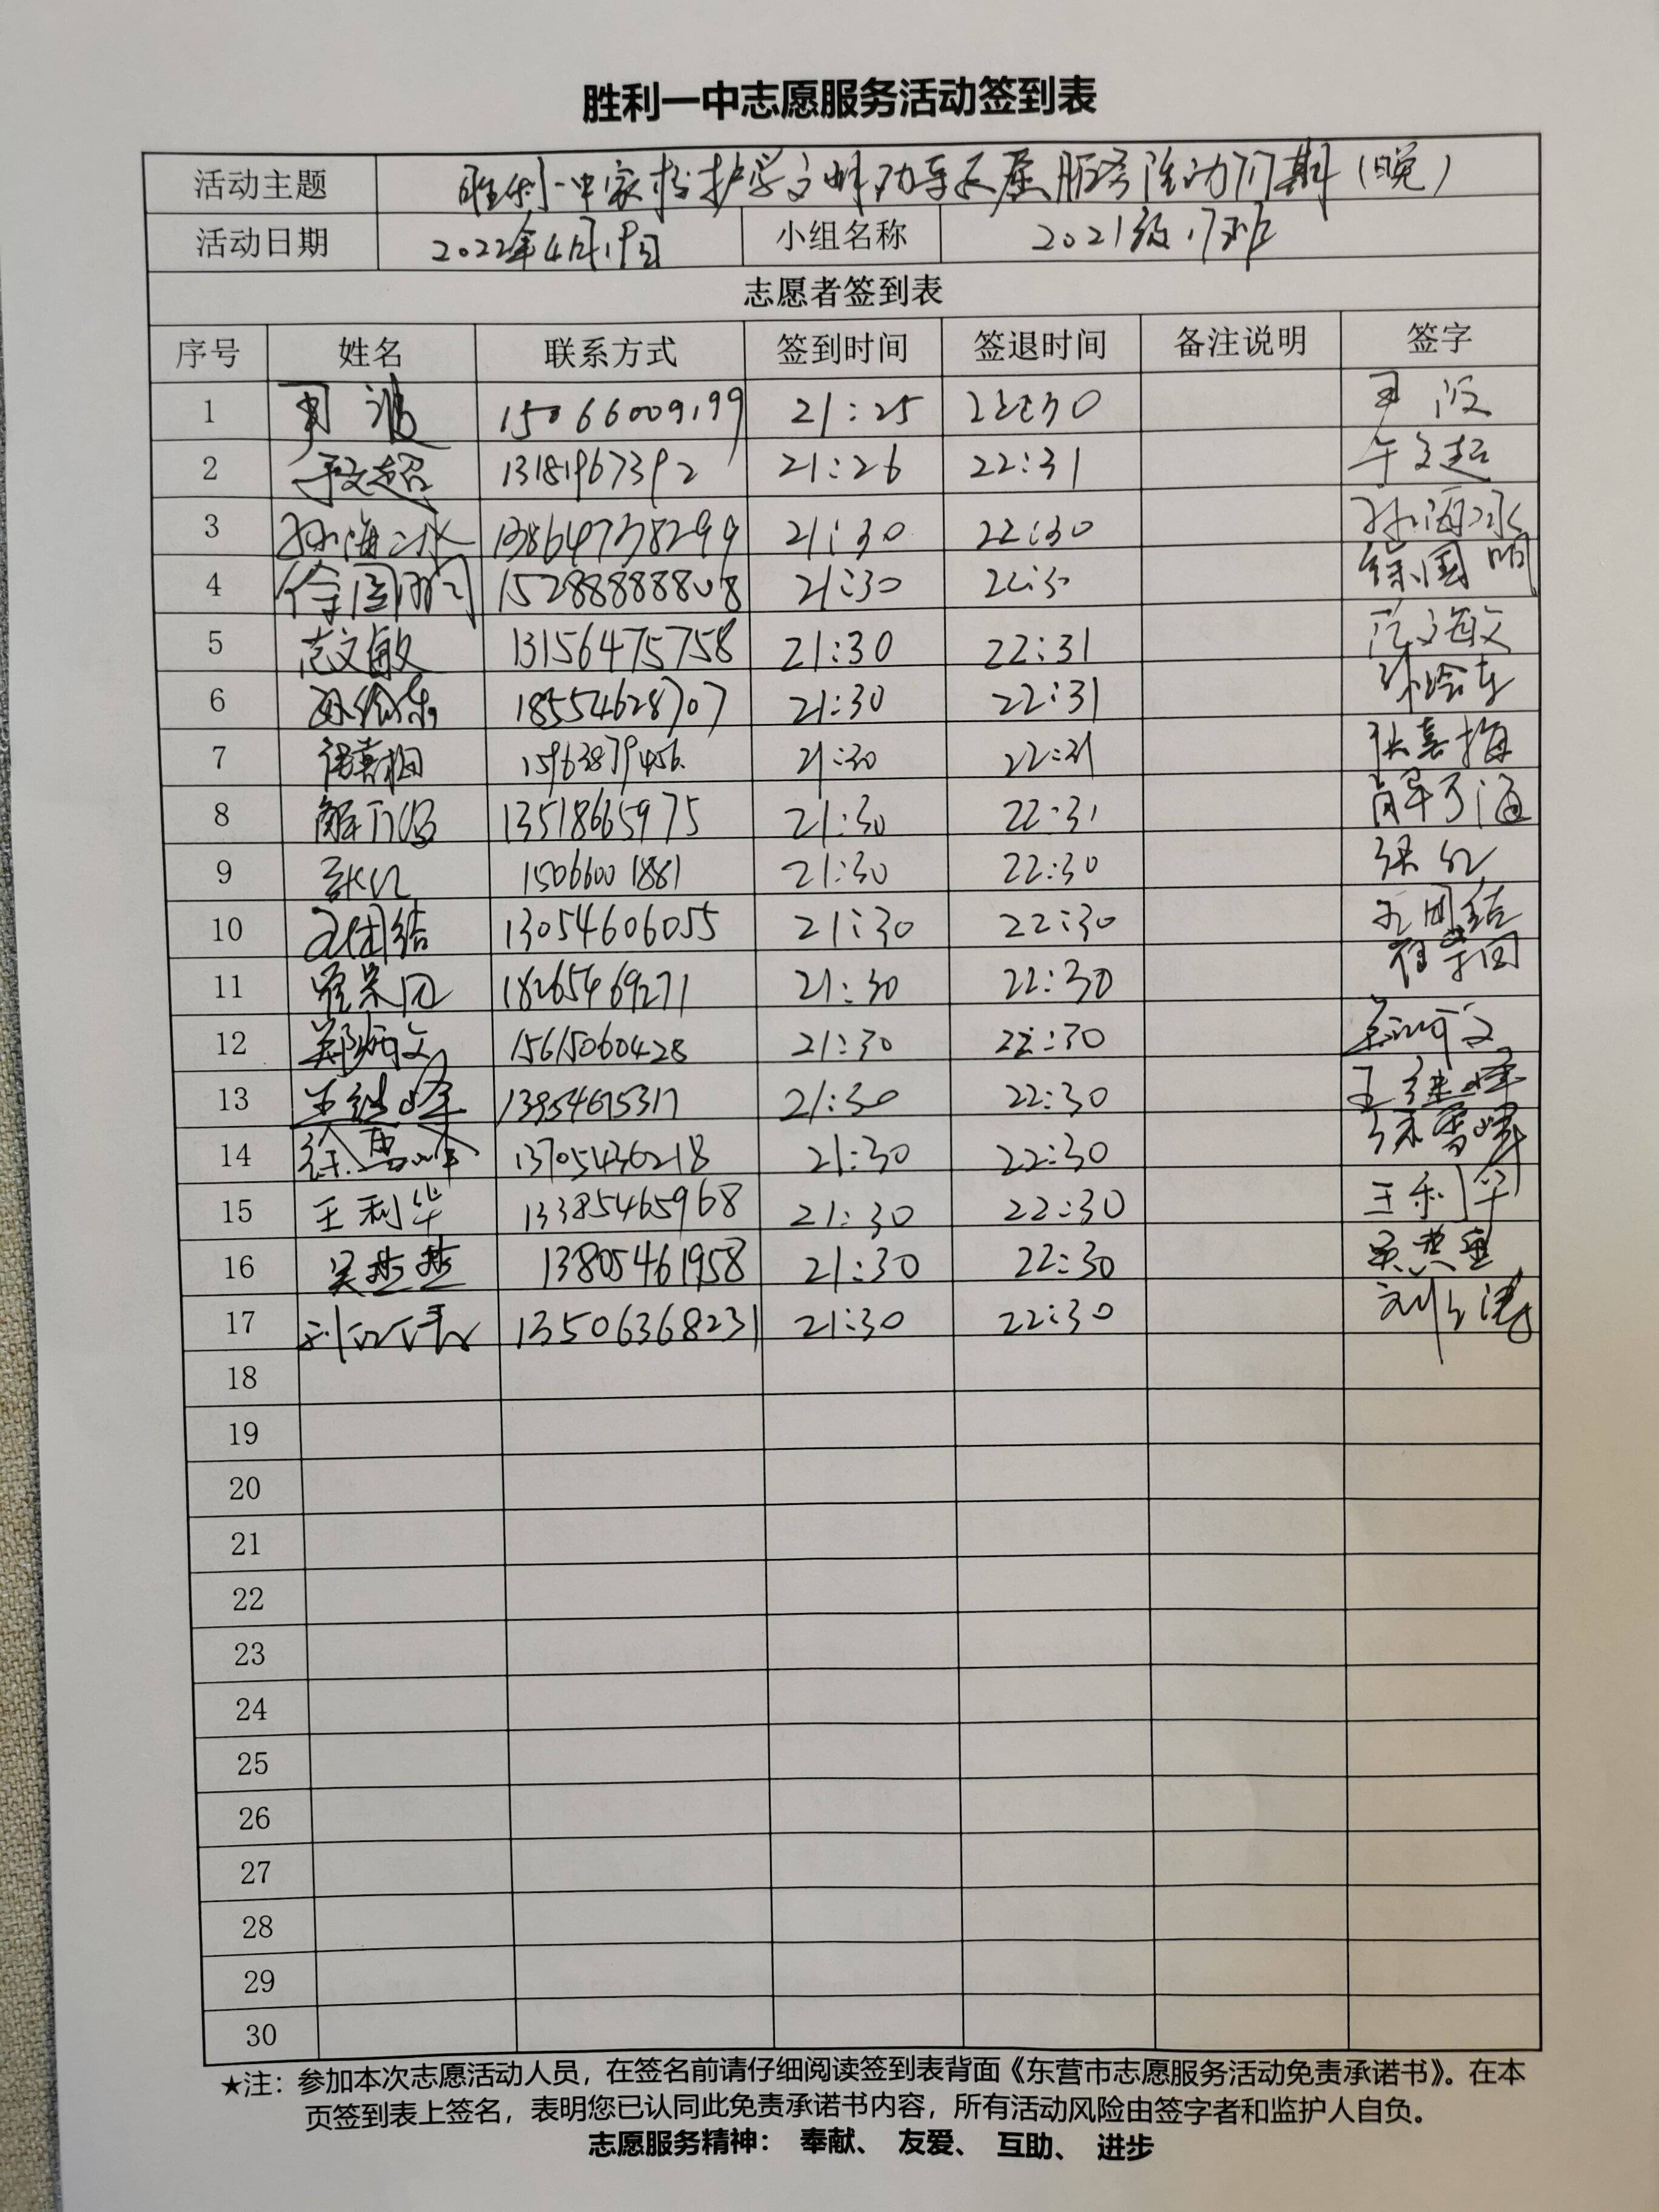 胜利一中志愿服务活动签到表
活动主题 胜利一中家校护学文明劝导志愿服务活动17期(晚)
活动日期 2022年4月19日 小组名称 2021级17班
志愿者签到表
序号 姓名 联系方式 签到时间 签退时间 备注说明 签字
1 波 15066009199 21:25 22:30 波
2 于文超 13181967392 21:26 22:31 于文超
3 孙海冰 13864738299 21:30 22:30 孙海冰
4 徐国明 15288888808 21:30 22:30 徐国明
5 范文敏 13156475758 21:30 22:31 范文敏
6 18554628707 21:30 22:31
7 张喜梅 15963879456 21:30 22:31 张喜梅
8 解万海 13518665975 21:30 22:31 解万海
9 张红 15066001881 21:30 22:30 张红
10 团结 13054606055 21:30 22:30 团结
11 18265469271 21:30 22:30
12 郑炳文 15615060428 21:30 22:30 郑炳文
13 王继峰 13954675317 21:30 22:30 王继峰
14 徐雪峰 13705436218 21:30 22:30 徐雪峰
15 王利华 13385465968 21:30 22:30 王利华
16 吴燕燕 13805461958 21:30 22:30 吴燕燕
17 刘 13506368231 21:30 22:30 刘
18
19
20
21
22
23
24
25
26
27
28
29
30
★注：参加本次志愿活动人员，在签名前请仔细阅读签到表背面《东营市志愿服务活动免责承诺书》。在本
页签到表上签名，表明您已认同此免责承诺书内容，所有活动风险由签字者和监护人自负。
志愿服务精神： 奉献、 友爱、 互助、 进步